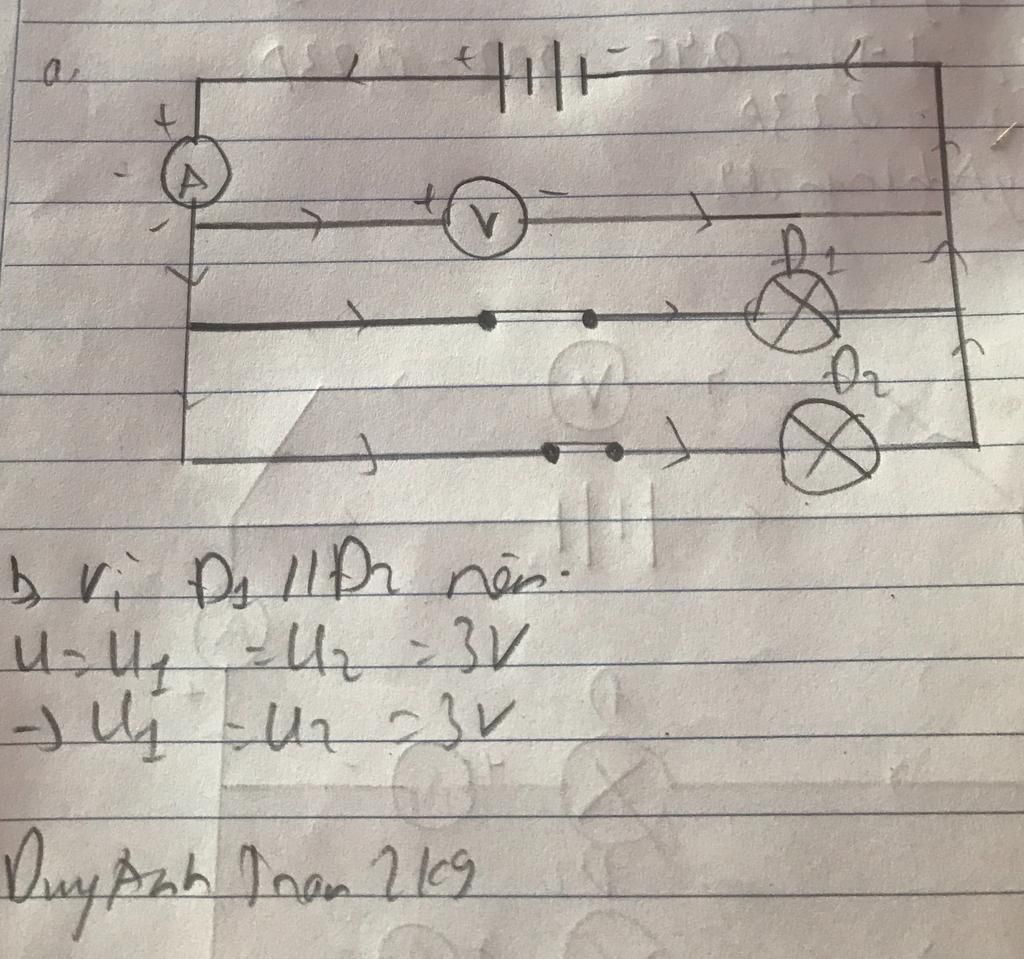 a.
+ -
+
A
-
+ V -
Đ1
Đ2
b, Vì Đ1 // Đ2 nên.
U = U1 = U2 = 3V
→ U1 = U2 = 3V
Duy Anh Tran 2k9